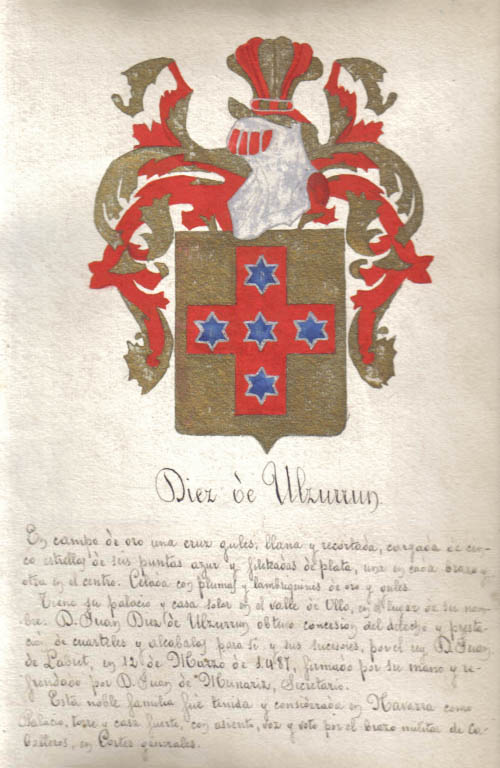 Diez de Ulzurrun
En campo de oro una cruz gules, llana y recortada, cargada de cin-
co estrellas de seis puntas azur y fileteadas de plata, una en cada brazo y
otra en el centro. Celada con plumas y lambrequines de oro y gules.
Tiene su palacio y casa solar en el valle de Ollo, en el lugar de su nom-
bre. D. Juan Diez de Ulzurrun obtuvo concesion del derecho y presta-
cion de cuarteles y alcabalas para si y sus sucesores, por el rey D. Juan
de Labrit, en 12 de Marzo de 1.487, firmado por su mano y re-
frendado por D. Juan de Munariz, Secretario.
Esta noble familia fue tenida y considerada en Navarra como
Palacio, torre y casa fuerte, con asiento, voz y voto por el brazo militar de Ca-
balleros, en Cortes generales.